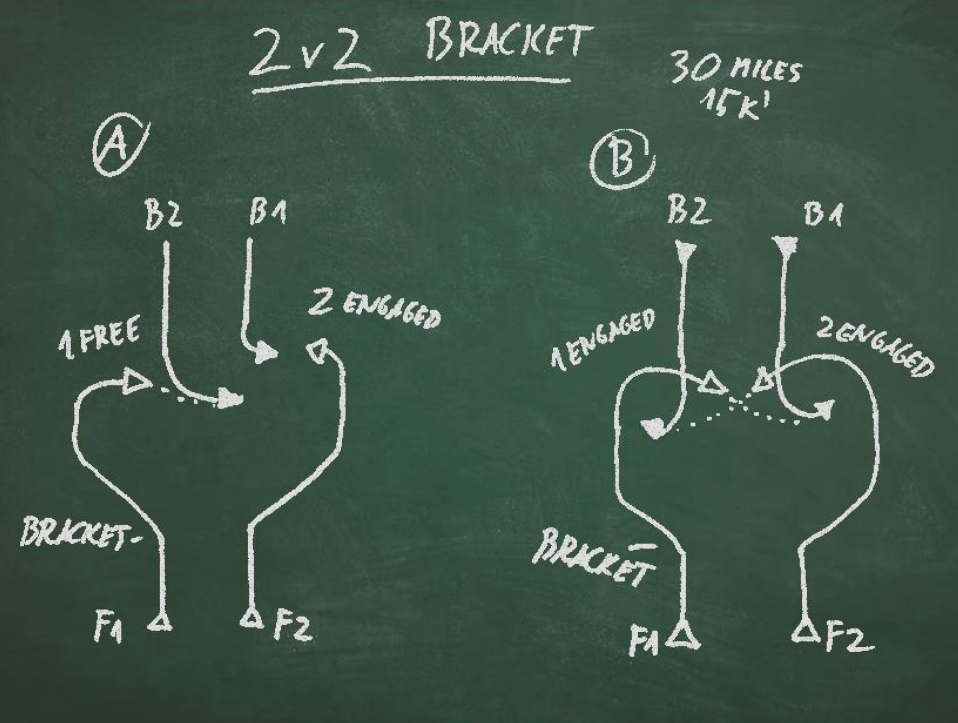 2v2 BRACKET
30 MILES
15K'
A
B
B2 B1
B2 B1
1 FREE
2 ENGAGED
1 ENGAGED
2 ENGAGED
BRACKET-
BRACKET
F1 F2
F1 F2